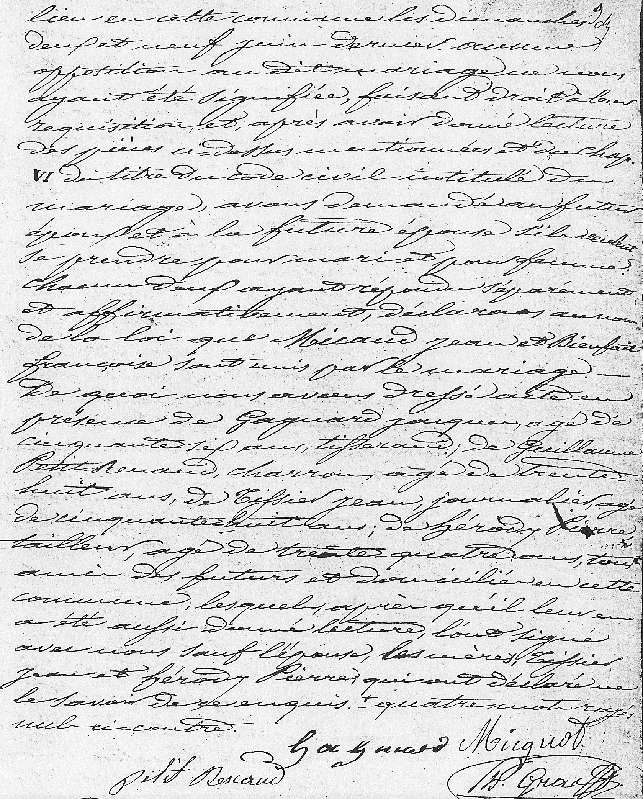 lieu en cette commune les dimanches
deux et neuf juin dernier aucune
opposition au dit mariage ne nous
ayant été signifiée, faisant droit à leur
requisition, et, après avoir donné lecture
des pièces ci-dessus mentionnées et du chap.
VI du titre du code civil intitulé du
mariage, avons demandé au futur
époux et à la future épouse s'ils veulent
se prendre pour mari et pour femme
chacun d'eux ayant répondu séparément
et affirmativement, déclarons au nom
de la loi que jean et Bienfait
françoise sont unis par le mariage —
De quoi nous avons dressé acte en
présence de Gagnard jacques, agé de
cinquante six ans, tisserand; de Guillaume
Petit Renaud, charron, agé de trente
huit ans, de Tissier jean, journalier, agé
de cinquante huit ans; de férody Pierre
tailleur, agé de trente quatre ans, tous
amis des futurs et domiciliés en cette
commune, lesquels après qu'il leur en
a été aussi donné lecture, l'ont signé
avec nous sauf l'épouse les mères, Tissier
jean et férody Pierre qui ont déclaré ne
le savoir de ce enquis. quatre mots rayés
nuls ci contre.
Gagnard
petit Renaud